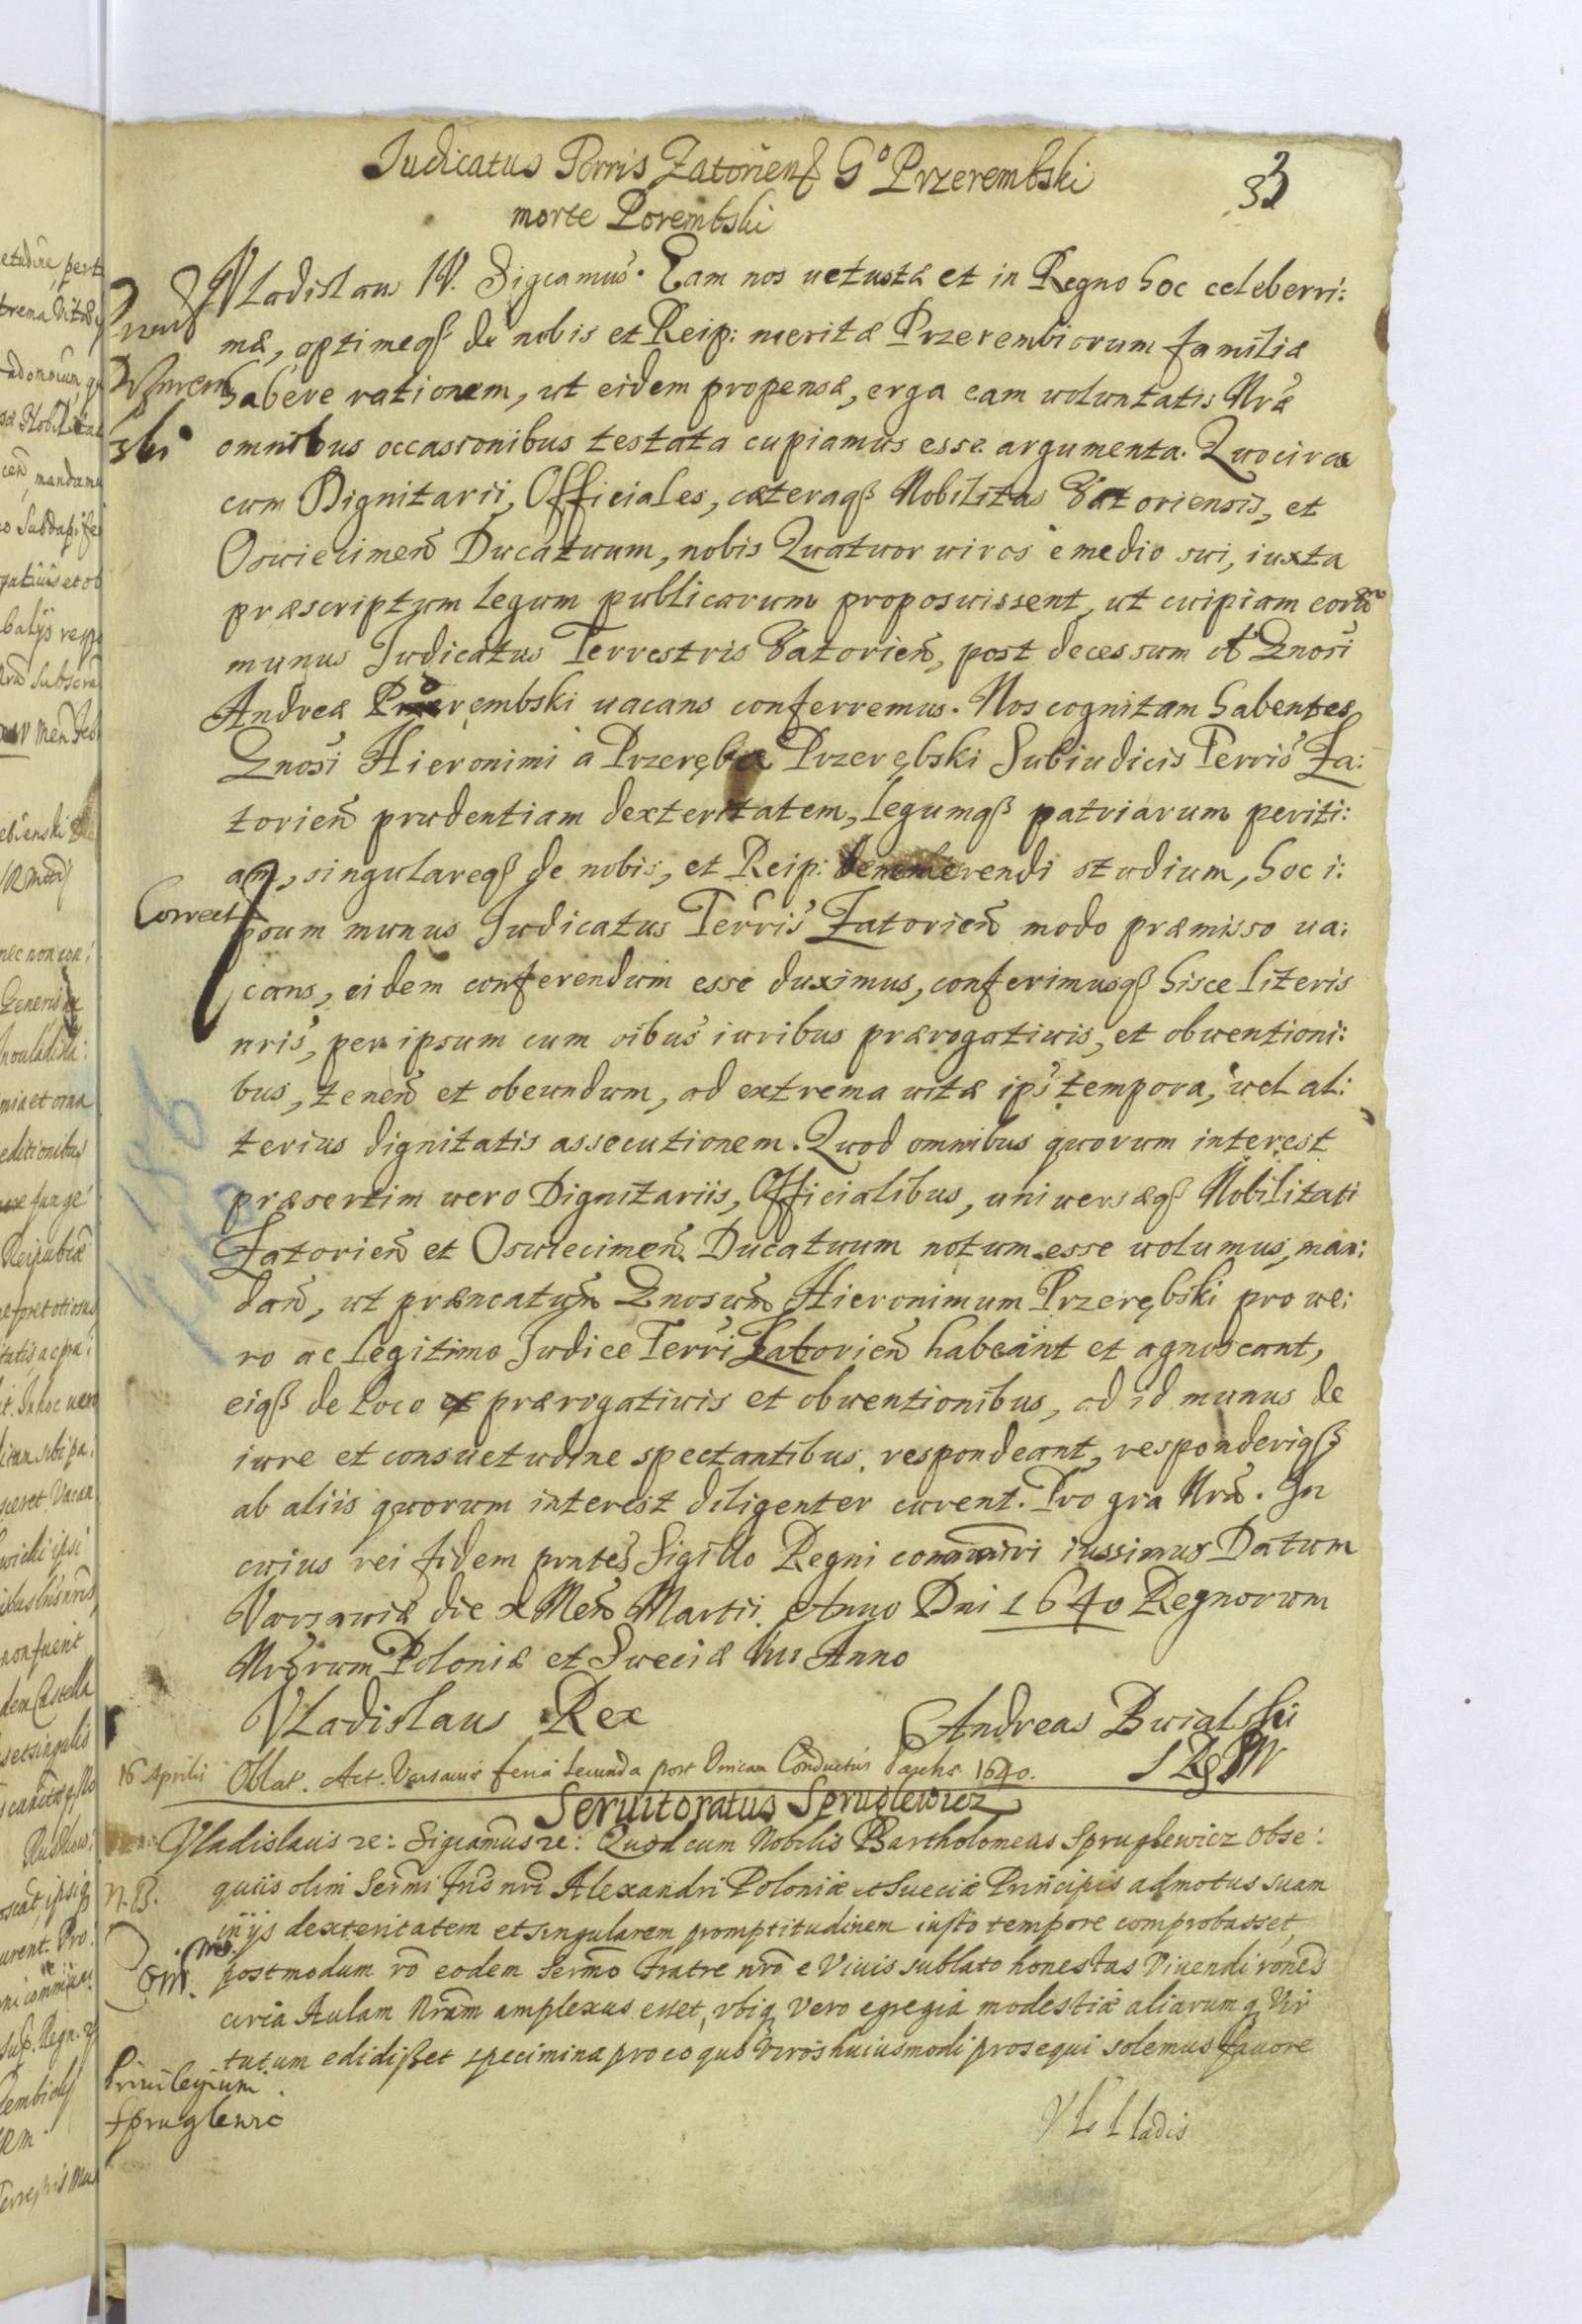 Judicatus Terris Zatorien G° Przerembski
morte Porembski
33
Vladislaus IV. Sigcamus. Eam nos uetustæ et in Regno hoc celeberri:
mæ, optimeqß de nobis et Reip: meritæ Przerembiorum familiæ
habere rationem, ut eidem propensæ, erga eam uoluntatis Nræ
omnibus occasionibus testata cupiamus esse argumenta. Quocirca
cum Dignitarii, Officiales, cæteraqß Nobilitas Zatoriensis, et
Oswiecimen Ducatuum, nobis Quatuor uiros e medio sui, iuxta
præscriptum legum publicarum proposuissent, ut cuipiam eorū
munus Judicatus Terrestris Zatorien, post decessum Gnosi
Andreæ Porembski uacans conferremus. Nos cognitam habentes
Gnosi Hieronimi a Przeręba Przerębski Subiudicis Terris Za:
torien prudentiam dexteritatem, legumqß patriarum periti:
am, singulareqß de nobis, et Reip: demerendi studium, hoc i:
Correct
psum munus Judicatus Terris Zatorien modo præmisso ua:
cans, eidem conferendum esse duximus, conferimusqß hisce literis
nris, per ipsum cum oibus iuribus prærogatiuis, et obuentioni:
bus, tenen et obeundum, ad extrema uitæ ips tempora, uel al:
terius dignitatis assecutionem. Quod omnibus quorum interest
præsertim uero Dignitariis, Officialibus, uniuersæqß Nobilitati
Zatorien et Oswiecimen Ducatuum notum esse uolumus, man:
dan, ut præncatum Gnosum Hieronimum Przerębski pro ue:
ro ac legitimo Judice Terri Zatorien habeant et agnoscant,
eiqß de loco et prærogatiuis et obuentionibus, ad id munus de
iure et consuetudine spectantibus, respondeant, responderiqß
ab aliis quorum interest diligenter curent. Pro gra Nra. In
cuius rei fidem pntes Sigillo Regni communiri iussimus Datum
Varsauiæ die X Men Martii. Anno Dni 1640 Regnorum
Nrorum Poloniæ et Sueciæ Anno
Vladislaus Rex
Andreas Bwialski
16 Aprilis Oblat. Act. Varsauiæ feria secunda post Dnicam Conductus Paschæ 1640.
Seruitoratus Spruglewicz
Vladislaus re: Sigcamus re: Quod cum Nobilis Bartholomeus Spruglewicz obse:
N.B.
quiis olim Sermi Fris nri Alexandri Poloniæ et Sueciæ Principis admotus suam
in ijs dexteritatem et singularem promptitudinem iusto tempore comprobasset,
postmodum ro eodem Sermo Fratre nro e Viuis sublato honestas Viuendi rones
circa Aulam Nram amplexus esset, vbiq vero egregia modestia aliarumq Vir
tutum edidisset specimina pro eo quo Viros huiusmodi prosequi solemus fauore
Priuilegium
Spruglewic